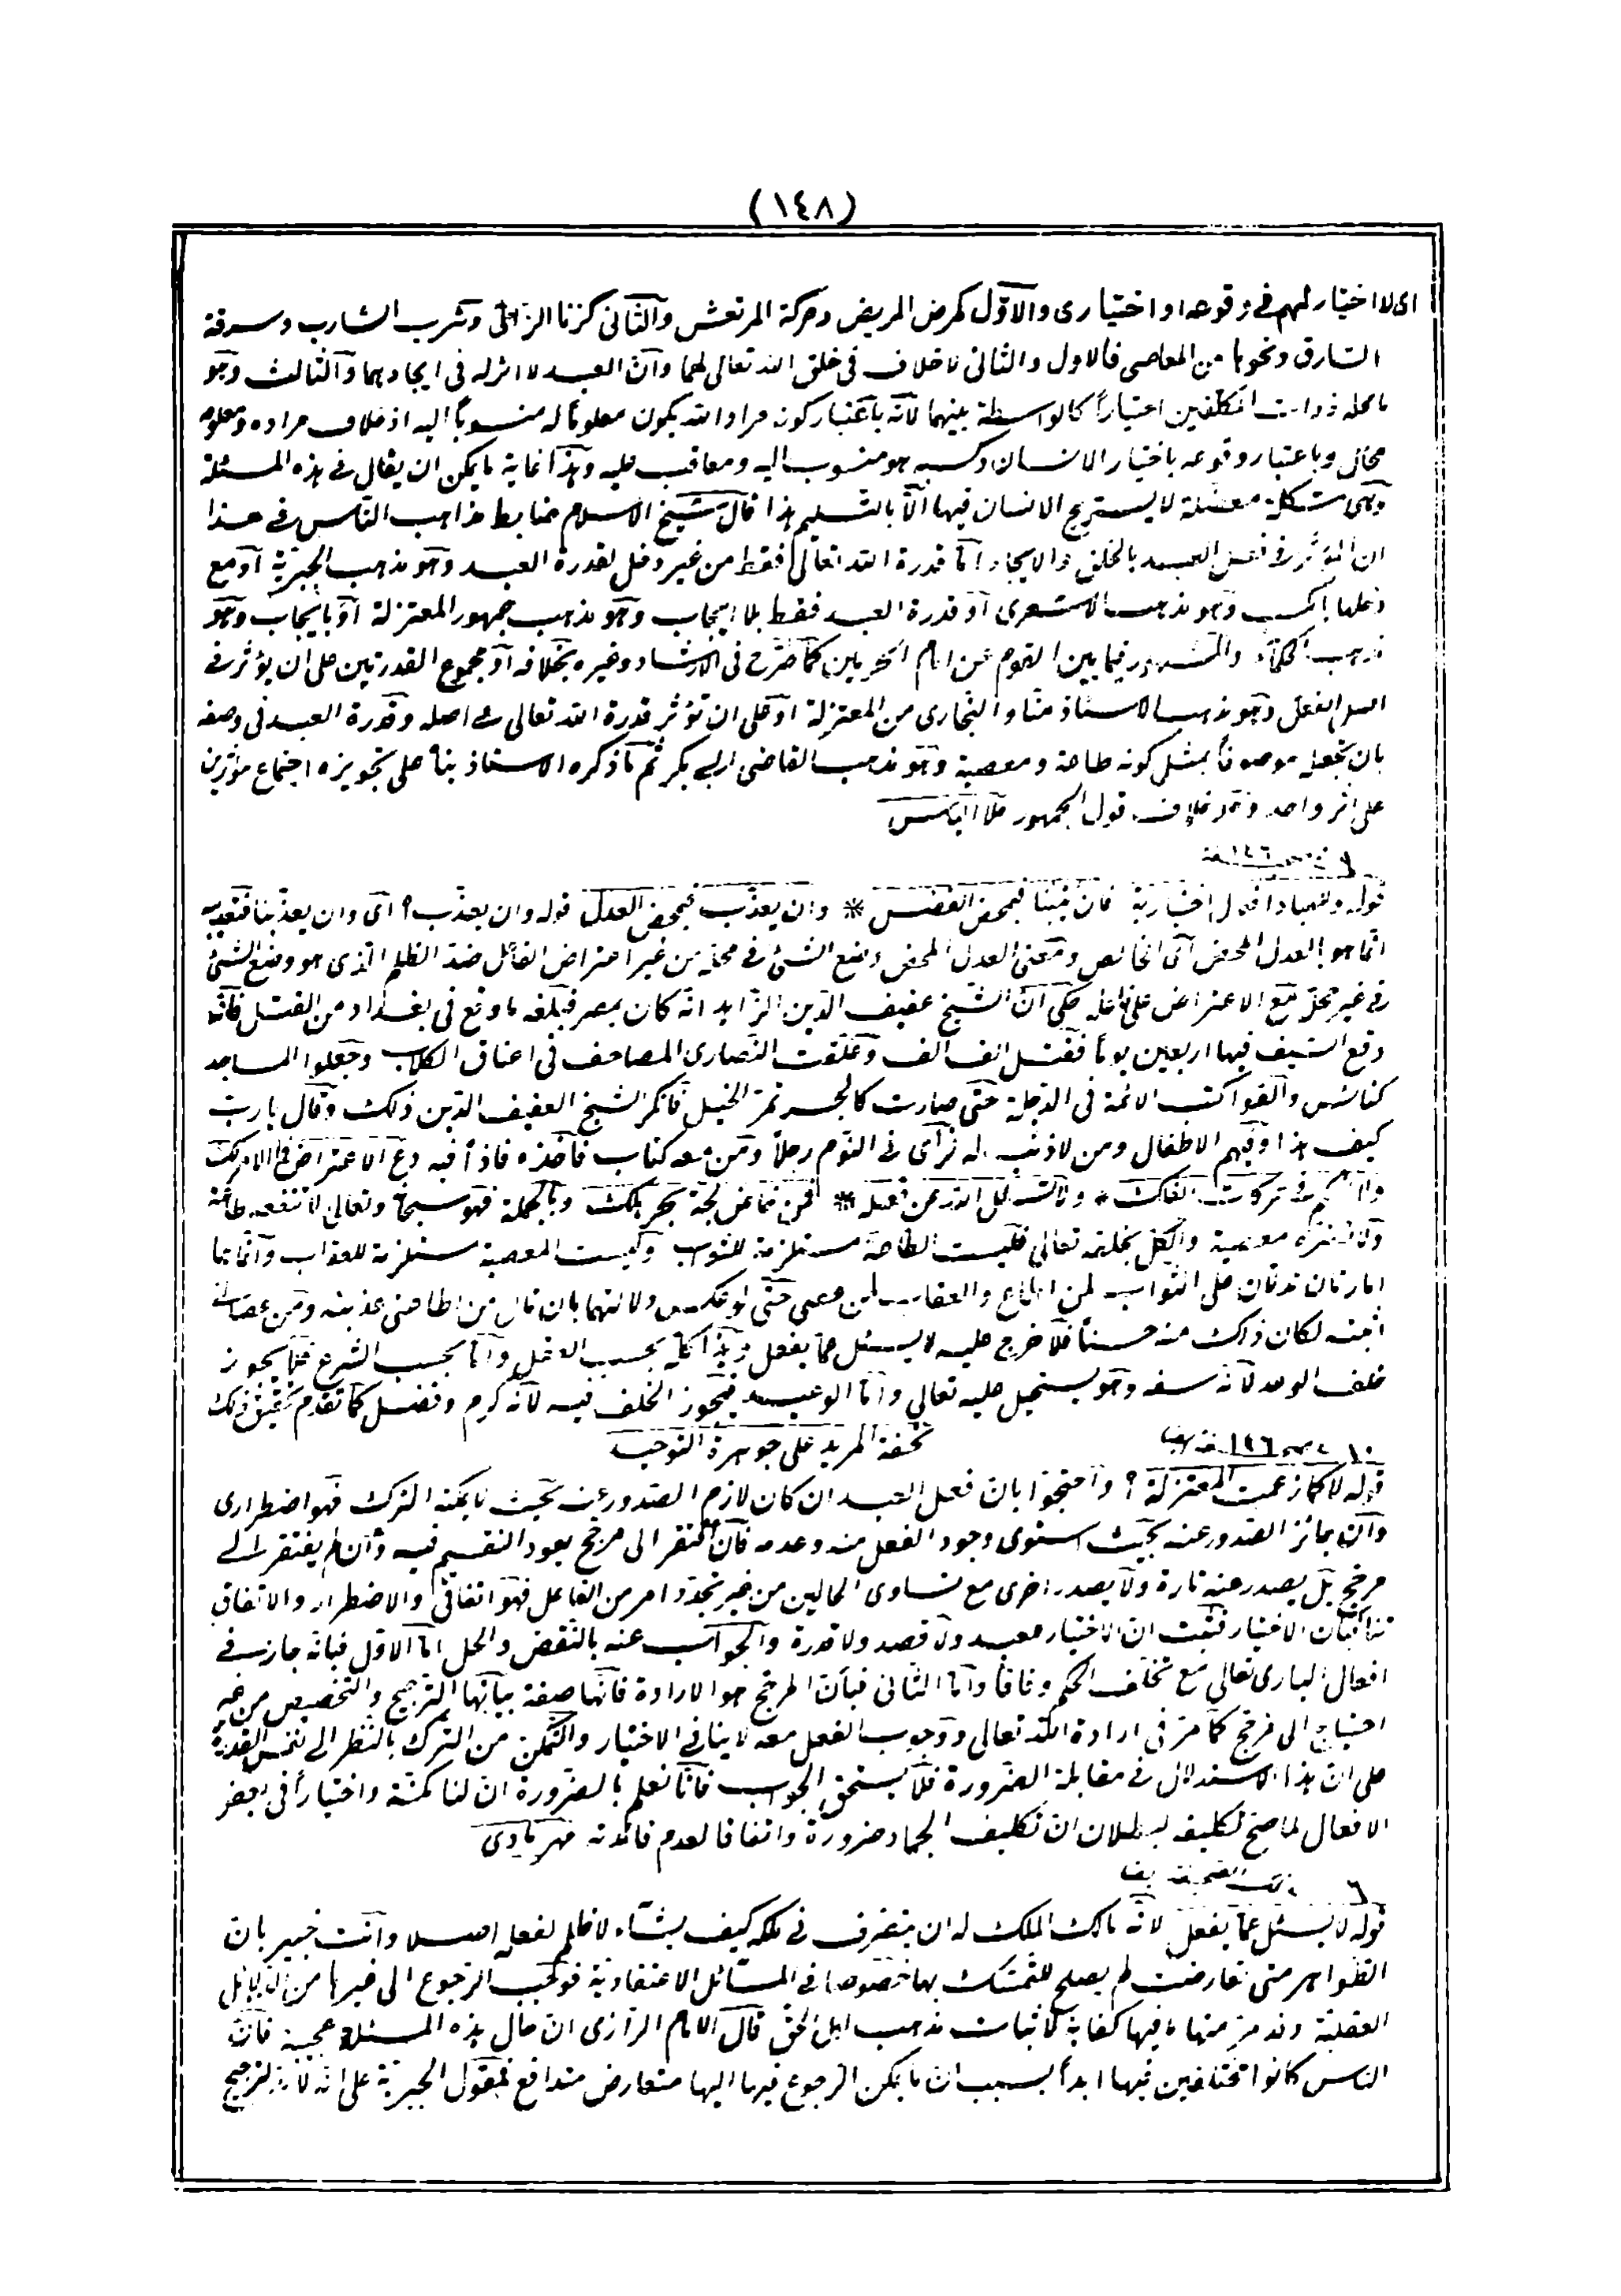 (١٤٨)
اى لا اختيار لهم فى وقوعه او اختيارى والاوّل كمرض المريض وحركة المرتعش والثّانى كزنا الزانى وشرب الشارب وسرقة
السّارق ونحوها من المعاصى فالاول والثانى لا خلاف فى خلق الله تعالى لهما وانّ العبد لا اثر له فى ايجادهما والثّالث وهو
ما محله ذوات المكلّفين اختياراً كالواسطة بينهما لانّه باعتبار كونه مراد الله يكون معلوماً له منسوباً اليه اذ خلاف مراده ومعلومه
محال وباعتبار وقوعه باختيار الانسان وكسبه هو منسوب اليه ومعاقب عليه وهذا غاية ما يمكن ان يقال فى هذه المسئلة
وهى مشكلة معضلة لا يستريح الانسان فيها الّا بالتّسليم هذا قال شيخ الاسلام ضابط مذاهب النّاس فى هذا
ان المؤثّر فى فعل العبد بالخلق والايجاد امّا قدرة الله تعالى فقط من غير دخل لقدرة العبد وهو مذهب الجبريّة او مع
دخلها بالكسب وهو مذهب الاشعرى او قدرة العبد فقط بلا ايجاب وهو مذهب جمهور المعتزلة او بايجاب وهو
مذهب الحكماء والمشهور فيما بين القوم عن امام الحرمين كما صرّح فى الارشاد وغيره بخلافه او مجموع القدرتين على ان يؤثر فى
اصل الفعل وهو مذهب الاستاذ منّا والنجارى من المعتزلة او على ان تؤثّر قدرة الله تعالى فى اصله وقدرة العبد فى وصفه
بان تجعله موصوفاً بمثل كونه طاعة ومعصية وهو مذهب القاضى ابى بكر ثم ما ذكره الاستاذ بناءً على تجويزه اجتماع مؤثرين
على اثر واحد وهو خلاف قول الجمهور ملا الياس
١٤٦
قوله وللعباد افعال اختيارية فان يثبنا فبمحض الفضل * وان يعذّب فبمحض العدل قوله وان يعذّب؟ اى وان يعذّبنا فتعذيبه
انّما هو بالعدل المحض اى الخالص ومعنى العدل المحض وضع الشىء فى محله من غير اعتراض الفاعل ضدّ الظلم الذى هو وضع الشىء
فى غير محلّه مع الاعتراض على فاعله حكى انّ الشّيخ عفيف الدّين الزّاهد انّه كان بمصر فبلغه ما وقع فى بغداد من القتل فانّه
وقع السّيف فيها اربعين يوماً فقتل الف الف وعلّقت النّصارى المصاحف فى اعناق الكلاب وجعلوا المساجد
كنائس والقوا كتب الائمة فى الدّجلة حتّى صارت كالجسر تمرّ الخيل فانكر الشيخ العفيف الدّين ذلك وقال يا ربّ
كيف هذا وفيهم الاطفال ومن لا ذنب له فرأى فى النّوم رجلاً ومن معه كتاب فاخذه فاذا فيه دع الاعتراض فما الامر لك
ولا الحكم فى حركات الفلك * ولا تسئل الله عن فعله * فمن خاض لجّة بحر هلك وبالجملة فهو سبحانه وتعالى لا تنفعه طاعة
ولا تضرّه معصية والكل بخلقه تعالى فليست الطّاعة مستلزمة للثواب وليست المعصية مستلزمة للعذاب وانّما هما
امارتان تدلّان على الثّواب لمن اطاع والعقاب لمن عصى حتّى لو عكس دلالتهما بان قال من اطاعنى عذّبته ومن عصانى
اثبته لكان ذلك منه حسناً فلا حرج عليه لا يسئل عمّا يفعل وهذا كلّه بحسب العقل وامّا بحسب الشرع فلا يجوز
خلف الوعد لانّه سفه وهو يستحيل عليه تعالى وامّا الوعيد فيجوز الخلف فيه لانّه كرم وفضل كما تقدّم تحقيق ذلك
تحفة المريد على جوهرة التوحيد
١٠ ١٤٦
قوله لا كما زعمت المعتزلة؟ واحتجوا بان فعل العبد ان كان لازم الصّدور عنه بحيث لا يمكنه الترك فهو اضطرارى
وان جائز الصّدور عنه بحيث استوى وجود الفعل منه وعدمه فان افتقر الى مرجّح يعود التقسيم فيه وان لم يفتقر الى
مرجّح بل يصدر عنه تارة ولا يصدر اخرى مع تساوى الحالين من غير تجدّد امر من الفاعل فهو اتفاقى والاضطرار والاتفاق
ينافيان الاختيار فثبت ان لا اختيار معه ولا قصد ولا قدرة والجواب عنه بالنّقض والحل امّا الاول فبانه جار فى
افعال البارى تعالى مع تخلّف الحكم وفاقاً وامّا الثّانى فبانّ المرجّح هو الارادة فانّها صفة بيانها الترجيح والتّخصيص من غير
احتياج الى مرجّح كما مرّ فى ارادة الله تعالى ووجوب الفعل معه لا ينافى الاختيار والتّمكن من الترك بالنّظر الى نفس القدرة
على ان هذا الاستدلال فى مقابلة الضّرورة فلا يستحق الجواب فانّا نعلم بالضّرورة انّ لنا مكنة واختياراً فى بعض
الافعال لما صحّ تكليف لبطلان انّ تكليف الجماد ضرورة واتفاقا لعدم فائدته
٦
قوله لا يسئل عمّا يفعل لانّه مالك الملك له ان يتصرف فى ملكه كيف يشآء لا ظلم لفعله اصلا وانت خبير بان
الظّواهر متى تعارضت لم يصلح للتّمسّك بها خصوصا فى المسائل الاعتقادية فوجب الرّجوع الى غيرها من الدّلائل
العقلية وقد مرّ منها ما فيها كفاية لاثبات مذهب اهل الحقّ قال الامام الرّازى ان حال هذه المسئلة عجيبة فانّ
الناس كانوا مختلفين فيها ابداً بسبب انّ ما يمكن الرّجوع فيها اليها متعارض متدافع فمعوّل الجبريّة على انه لا بدّ لترجيح